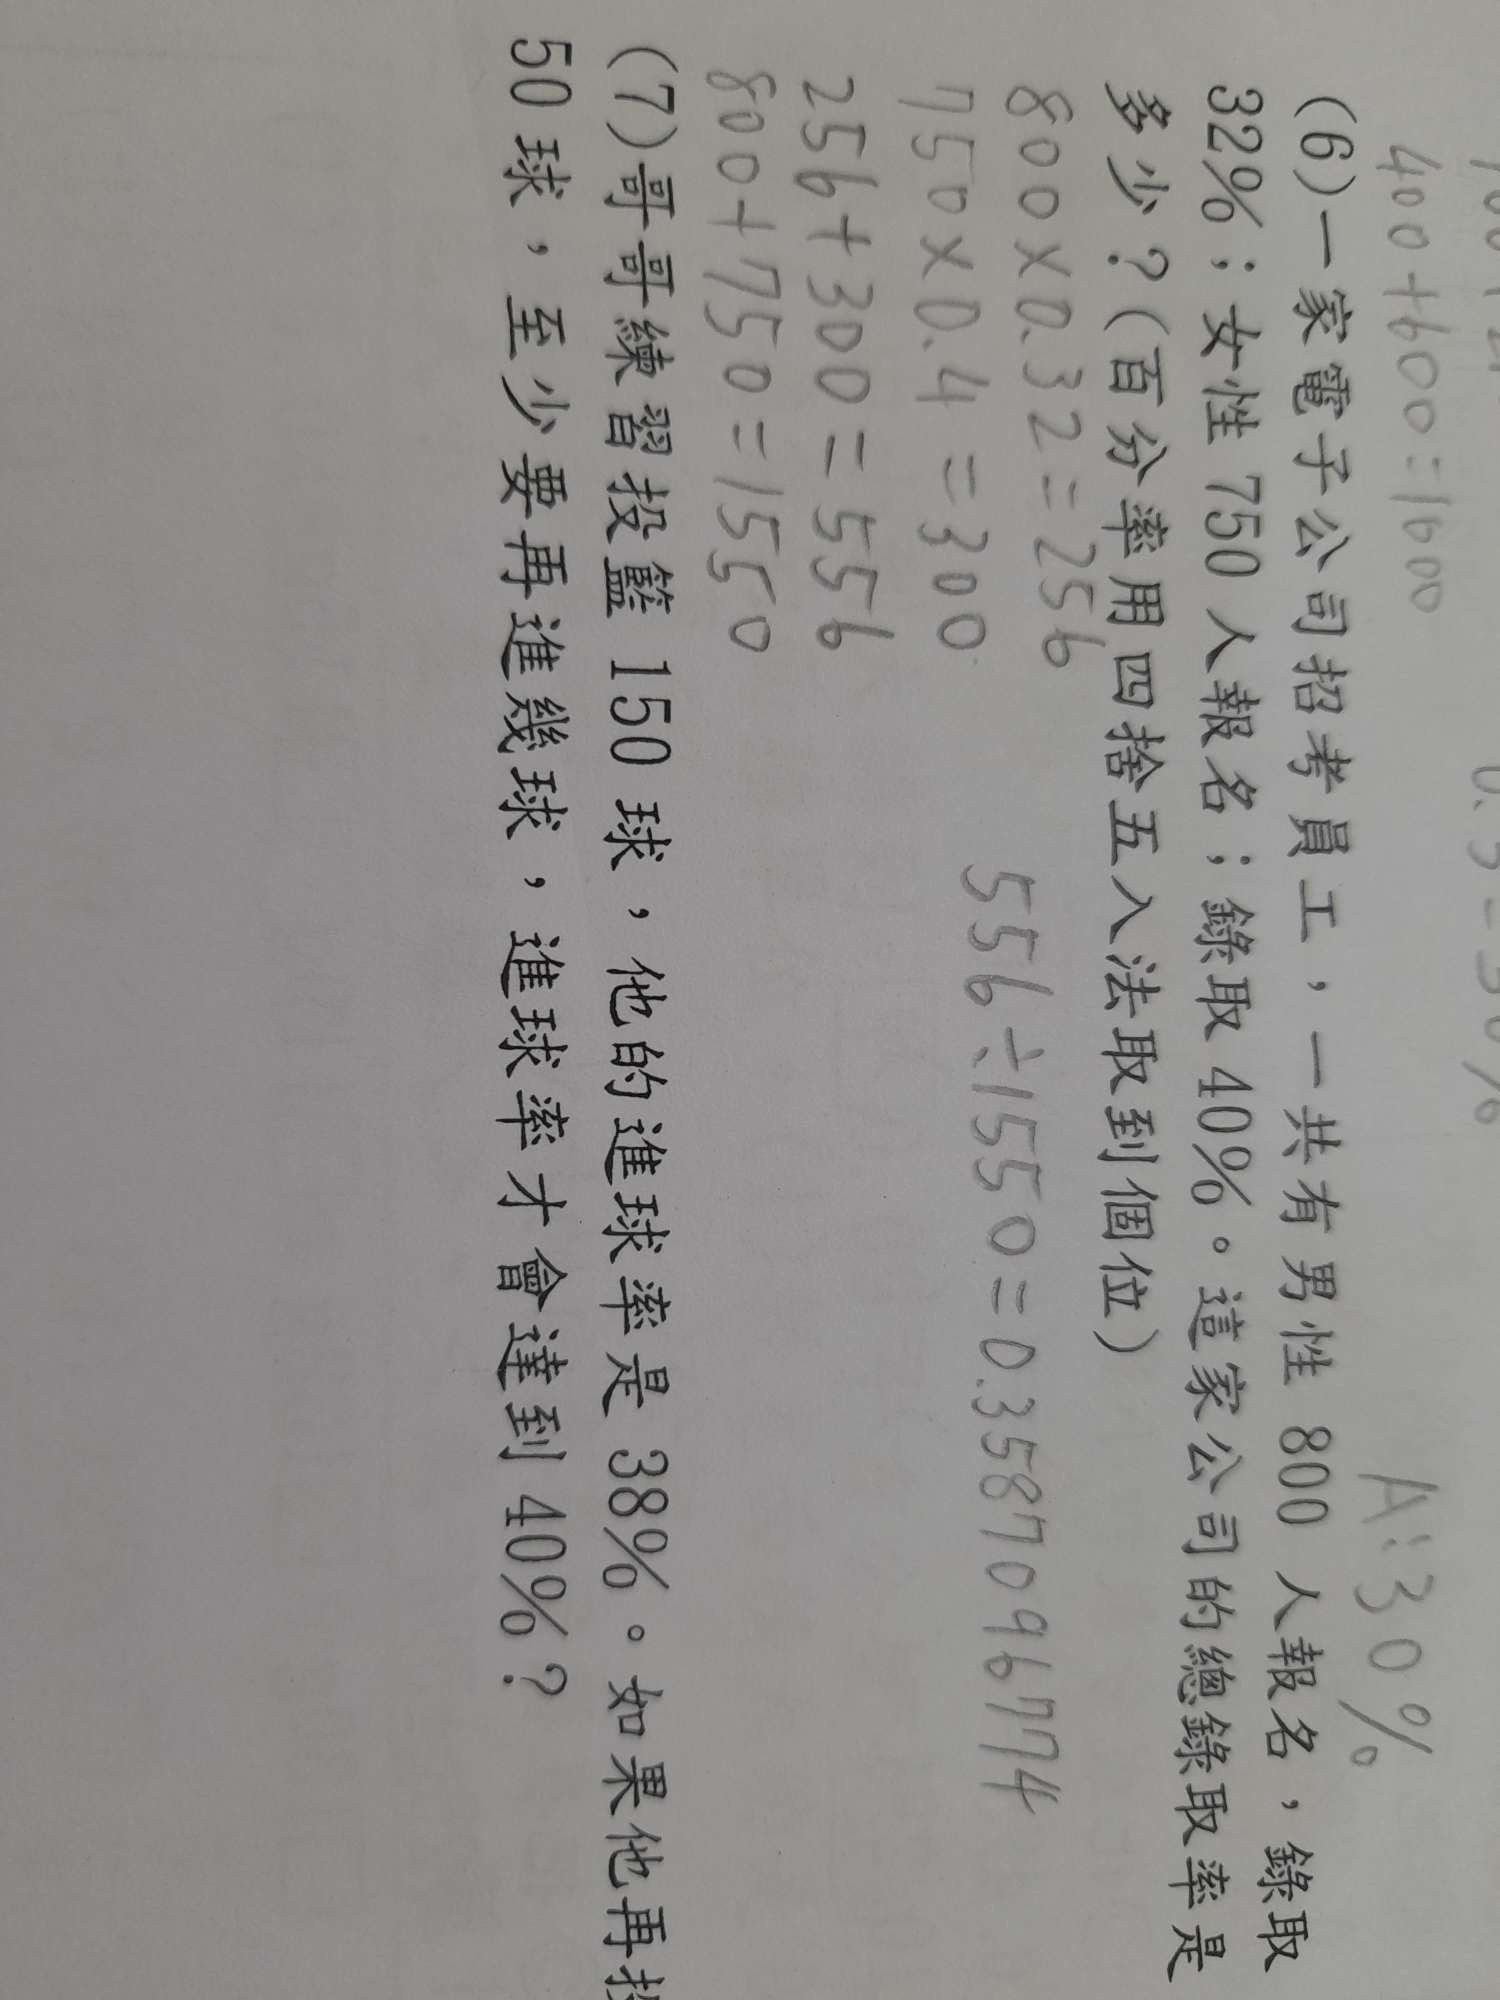 400+600=1600
A:30%
(6)一家電子公司招考員工，一共有男性 800 人報名，錄取
32%；女性 750 人報名；錄取 40%。這家公司的總錄取率是
多少？(百分率用四捨五入法取到個位)
800×0.32=256
750×0.4=300
556÷1550=0.3587096774
256+300=556
800+750=1550
(7)哥哥練習投籃 150 球，他的進球率是 38%。如果他再投
50 球，至少要再進幾球，進球率才會達到 40%？